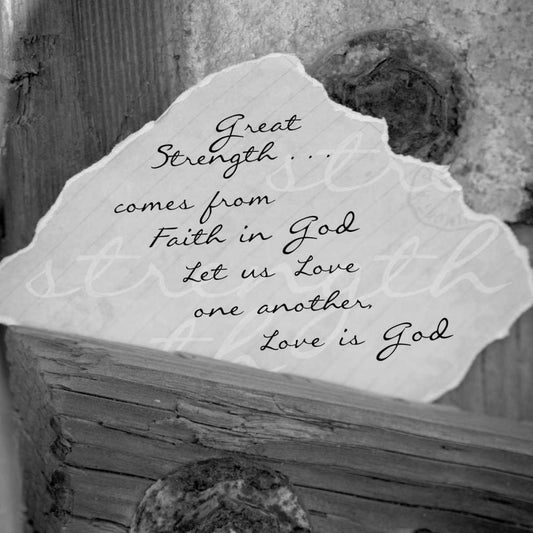 Great
Strength . . .
comes from
Faith in God
Let us Love
one another,
Love is God
strength
strength